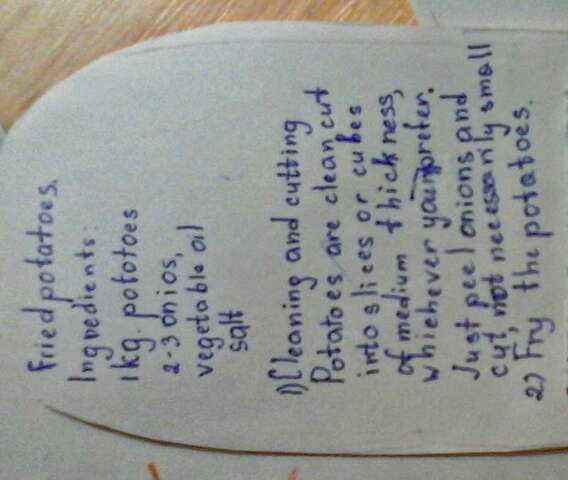 Fried potatoes.
Ingredients:
1 kg. pototoes
2-3 onios,
vegetable oil
salt
1) Cleaning and cutting
Potatoes are clean cut
into slices or cubes
of medium thickness,
whichever you prefer.
Just peel onions and
cut, not necessarily small
2) Fry the potatoes.